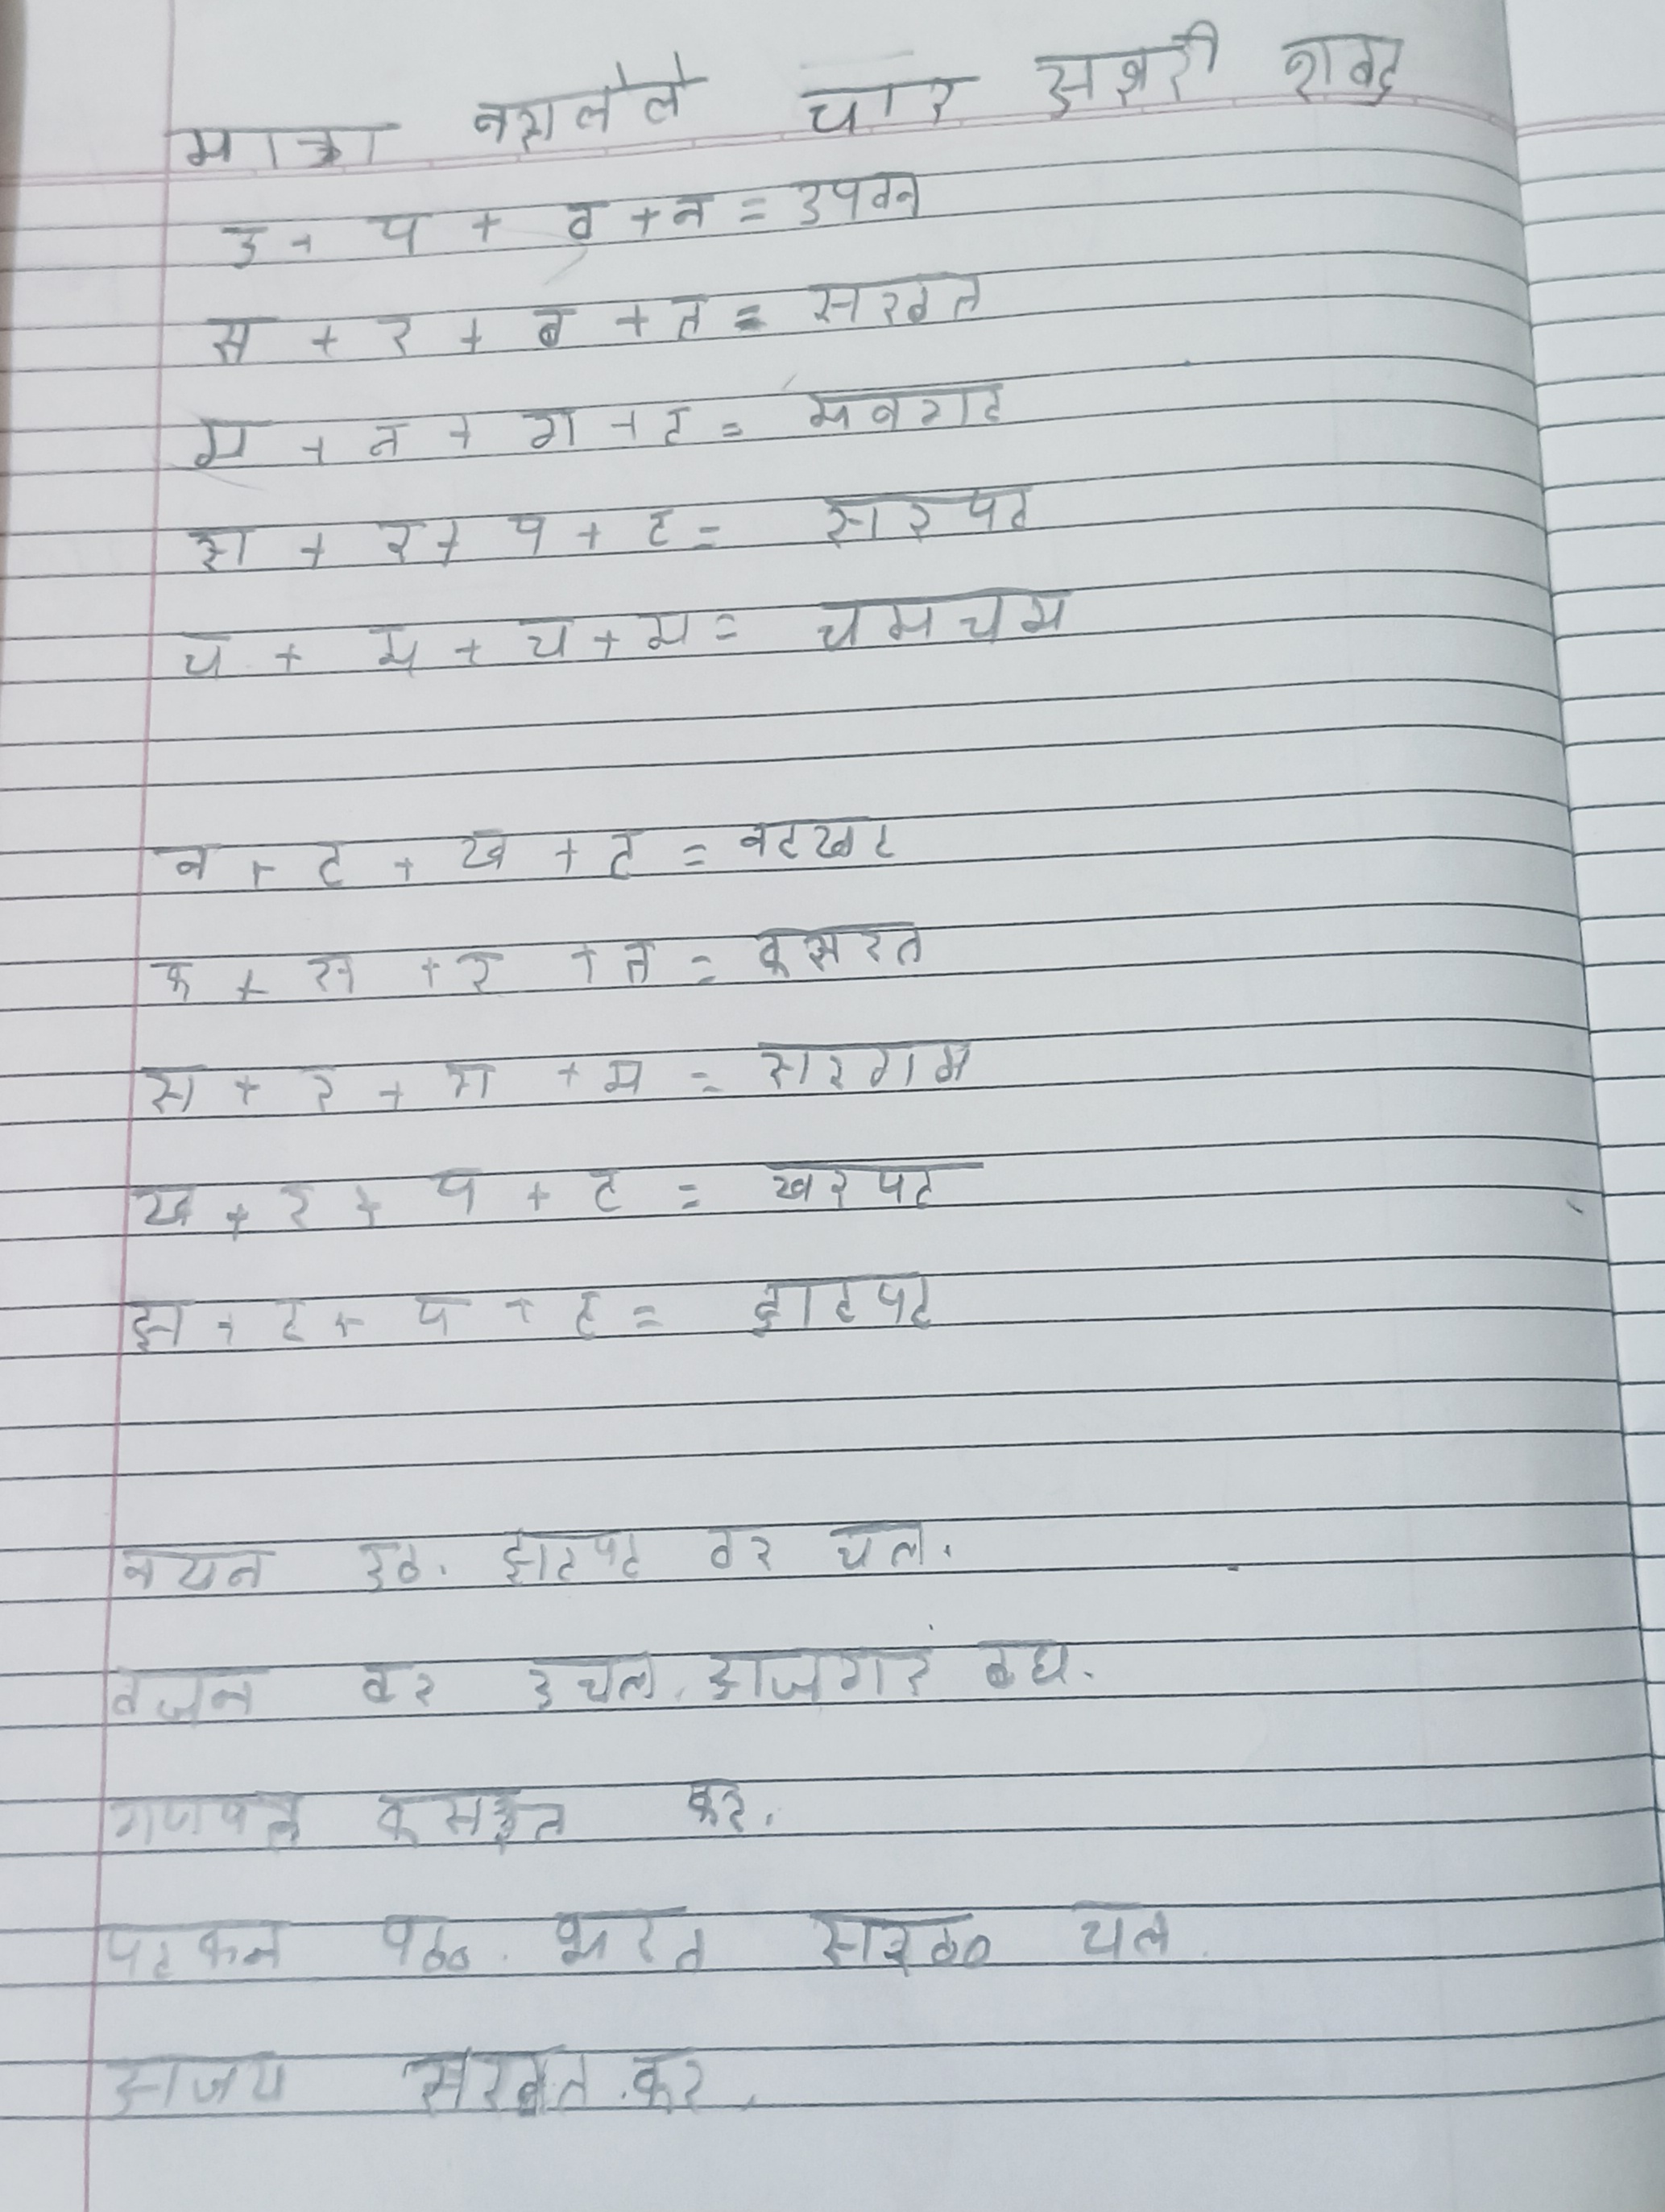 मात्रा नसलेले चार अक्षरी शब्द
उ + प + व + न = उपवन
स + र + ब + त = सरबत
म + न + ग + ट = मनगट
स + र + प + ट = सरपट
च + म + च + म = चमचम
न + ट + ख + ट = नटखट
क + स + र + त = कसरत
स + र + ग + म = सरगम
ख + र + प + ट = खरपट
झ + ट + प + ट = झटपट
नयन उठ. झटपट वर चल.
वजन वर उचल. अजगर बघ.
गणपत कसरत कर.
पटकन पळ. भरत सरळ चल.
अजय सरबत कर.